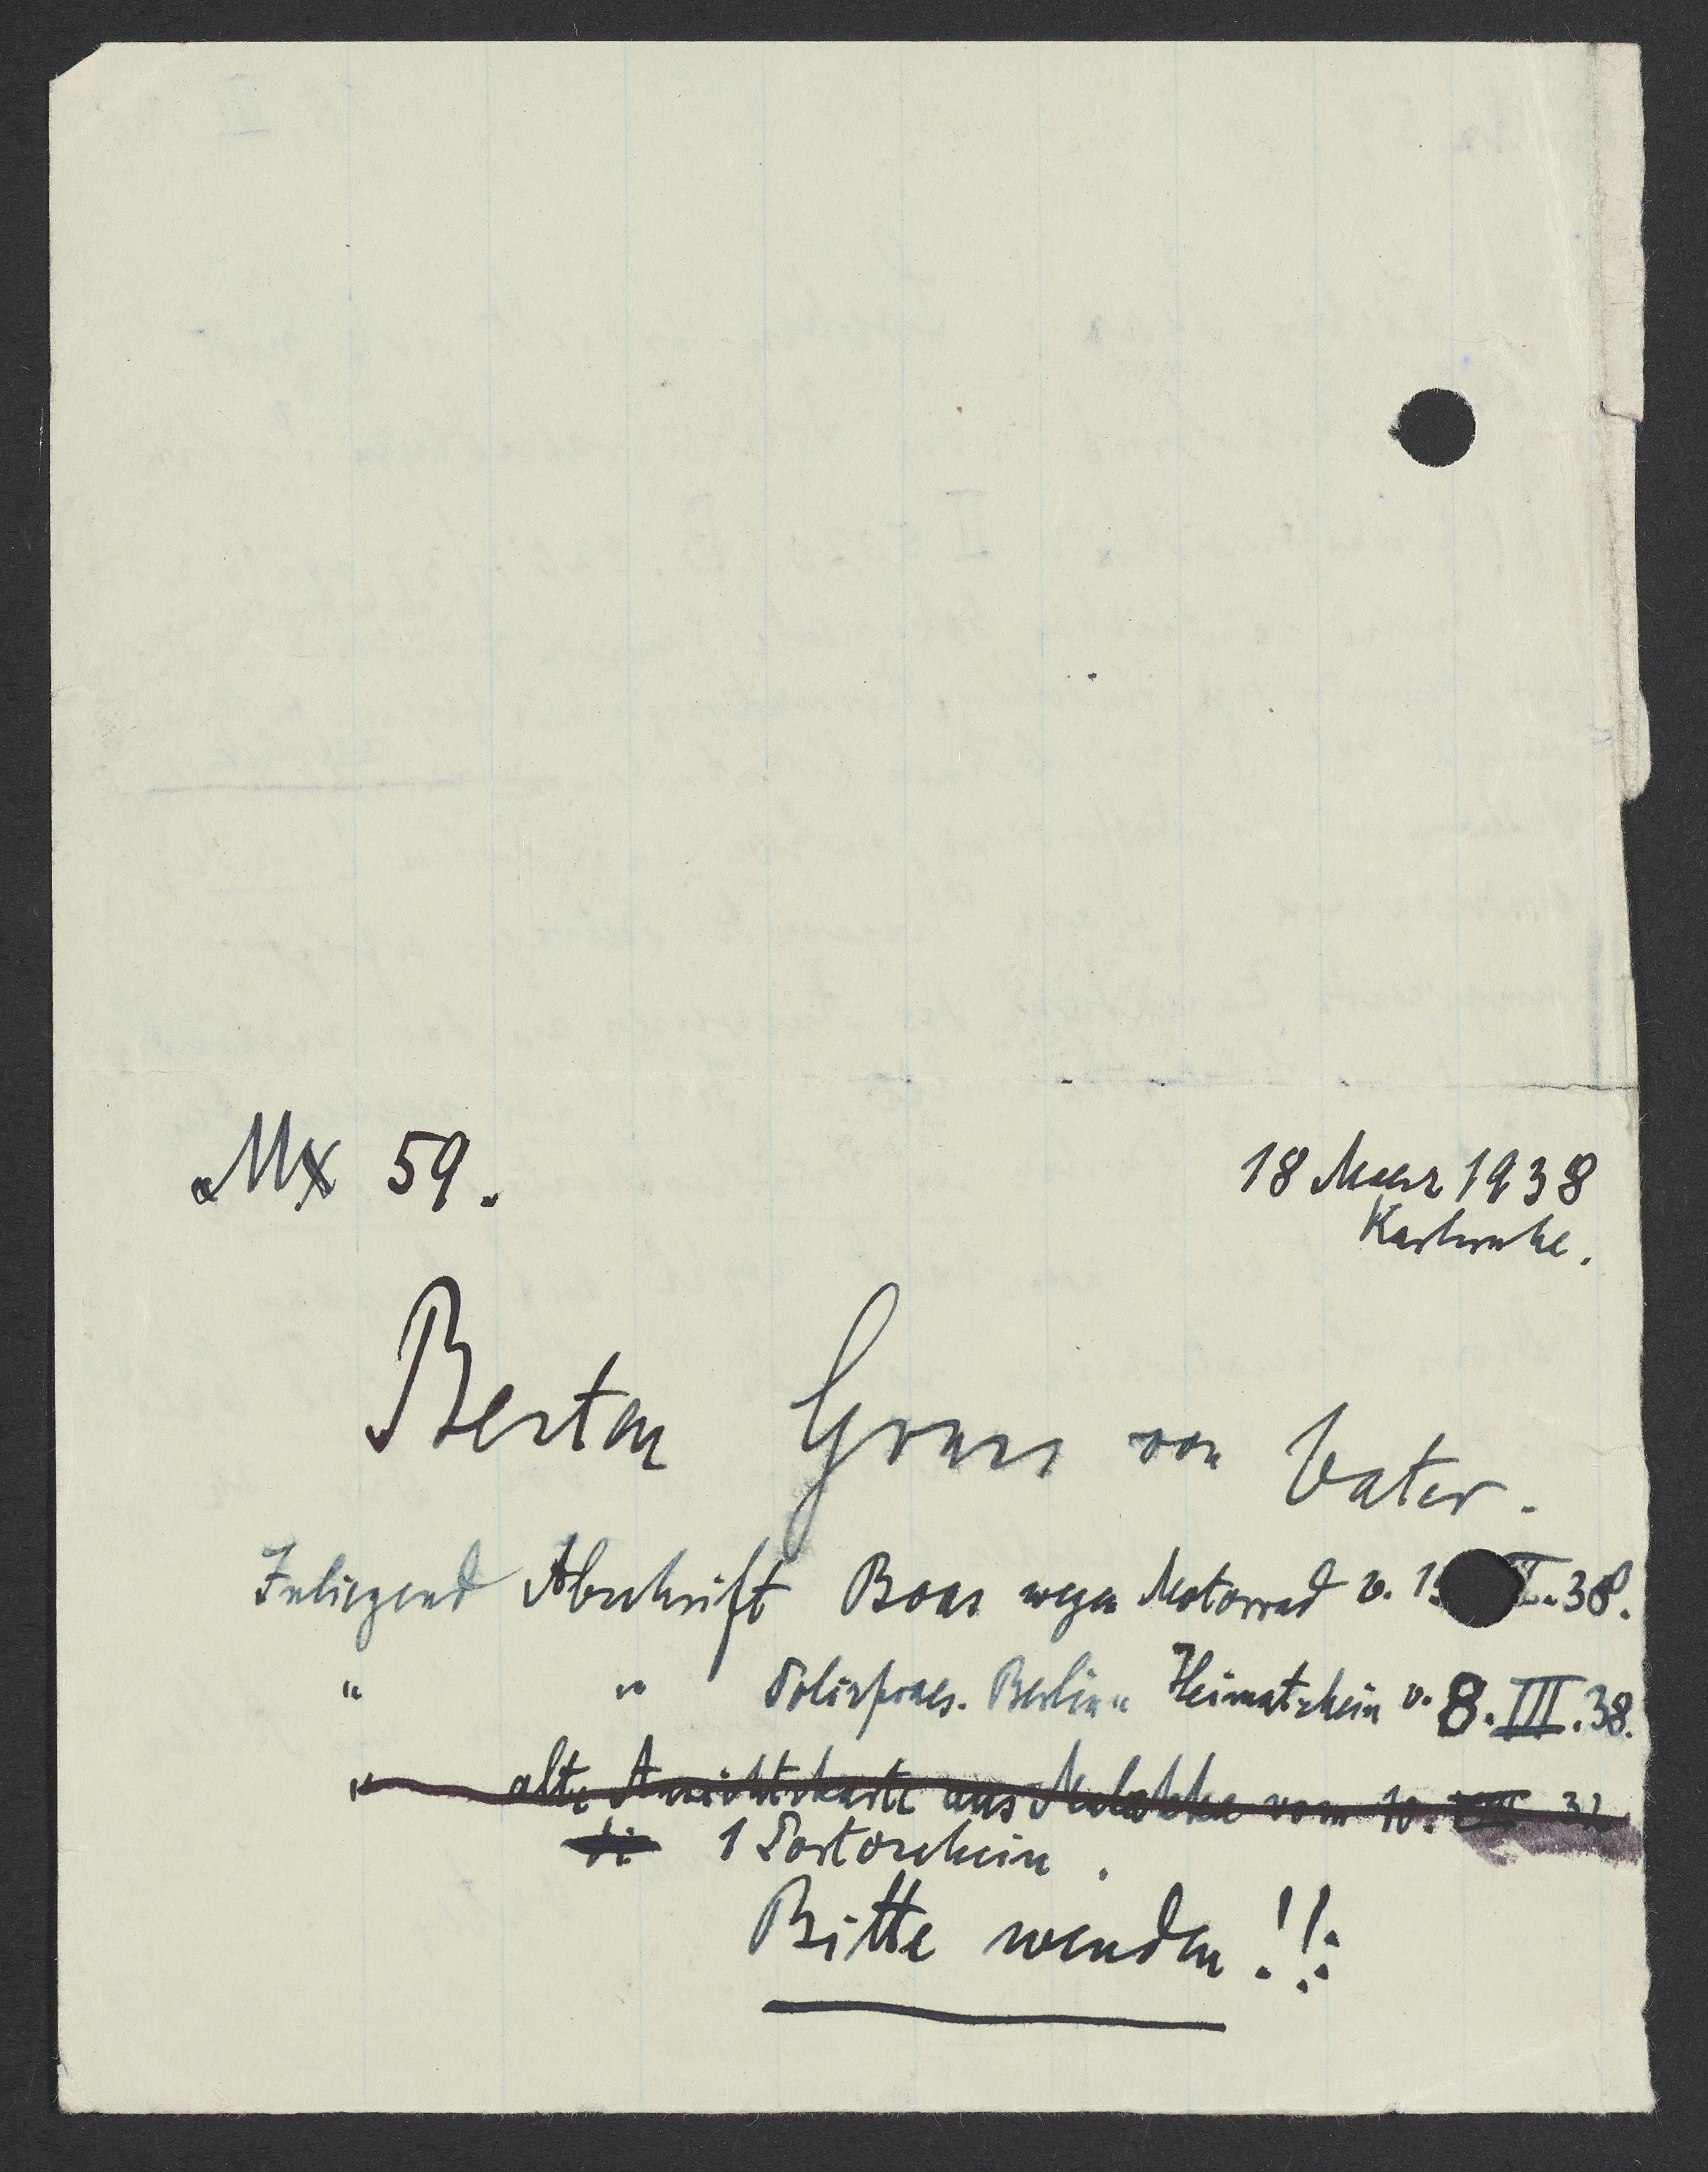 Mx 59.
18 Maerz 1938
Karlsruhe.
Besten Gruss von Vater.
Inliegend Abschrift Boas wegen Motorrad v. 1 .38.
" " Polizpraes. Berlin " Heimatschein v. 8.III.38.
" alte Ansichtskarte aus Malakka vom 10.
1 Portoschein.
Bitte wenden!!!